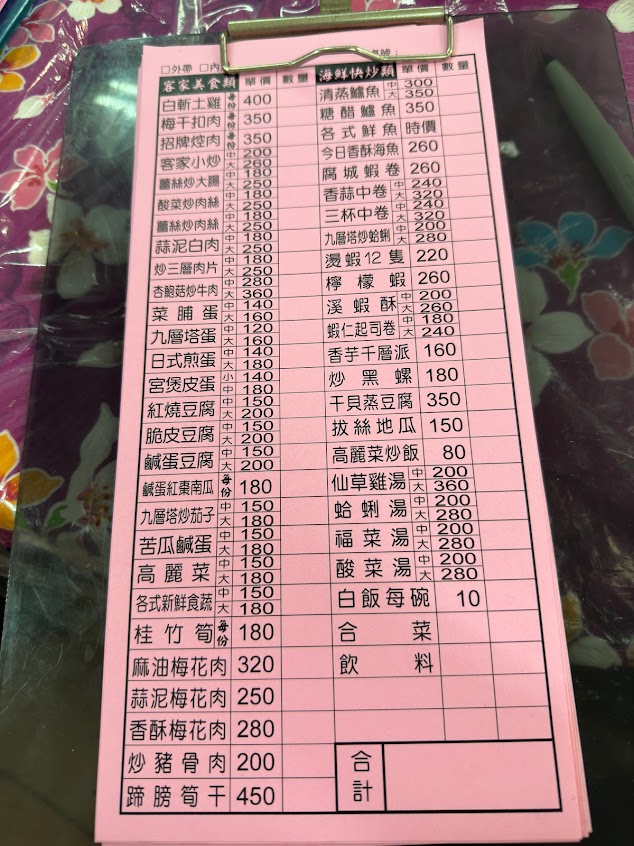 □外帶 □內
號：
客家美食類 單價 數量
白斬土雞 每份 400
梅干扣肉 每份 350
招牌焢肉 每份 350
客家小炒 中 200 大 280
薑絲炒大腸 中 180 大 250
酸菜炒肉絲 中 180 大 250
薑絲炒肉絲 中 180 大 250
蒜泥白肉 中 180 大 250
炒三層肉片 中 180 大 250
杏鮑菇炒牛肉 中 280 大 360
菜脯蛋 中 140 大 160
九層塔蛋 中 120 大 160
日式煎蛋 中 140 大 180
宮保皮蛋 小 140 中 180
紅燒豆腐 中 150 大 200
脆皮豆腐 中 150 大 200
鹹蛋豆腐 中 150 大 200
鹹蛋紅棗南瓜 每份 180
九層塔炒茄子 中 150 大 180
苦瓜鹹蛋 中 150 大 180
高麗菜 中 150 大 180
各式新鮮食蔬 中 150 大 180
桂竹筍 每份 180
麻油梅花肉 320
蒜泥梅花肉 250
香酥梅花肉 280
炒豬骨肉 200
蹄膀筍干 450
海鮮快炒類 單價 數量
清蒸鱸魚 中 300 大 350
糖醋鱸魚 350
各式鮮魚 時價
今日香酥海魚 260
腐城蝦卷 260
香蒜中卷 中 240 大 320
三杯中卷 中 240 大 320
九層塔炒蛤蜊 中 200 大 280
燙蝦12隻 220
檸檬蝦 260
溪蝦酥 中 200 大 260
蝦仁起司卷 中 180 大 240
香芋千層派 160
炒黑螺 180
干貝蒸豆腐 350
拔絲地瓜 150
高麗菜炒飯 80
仙草雞湯 中 200 大 360
蛤蜊湯 中 200 大 280
福菜湯 中 200 大 280
酸菜湯 中 200 大 280
白飯每碗 10
合菜
飲料
合計